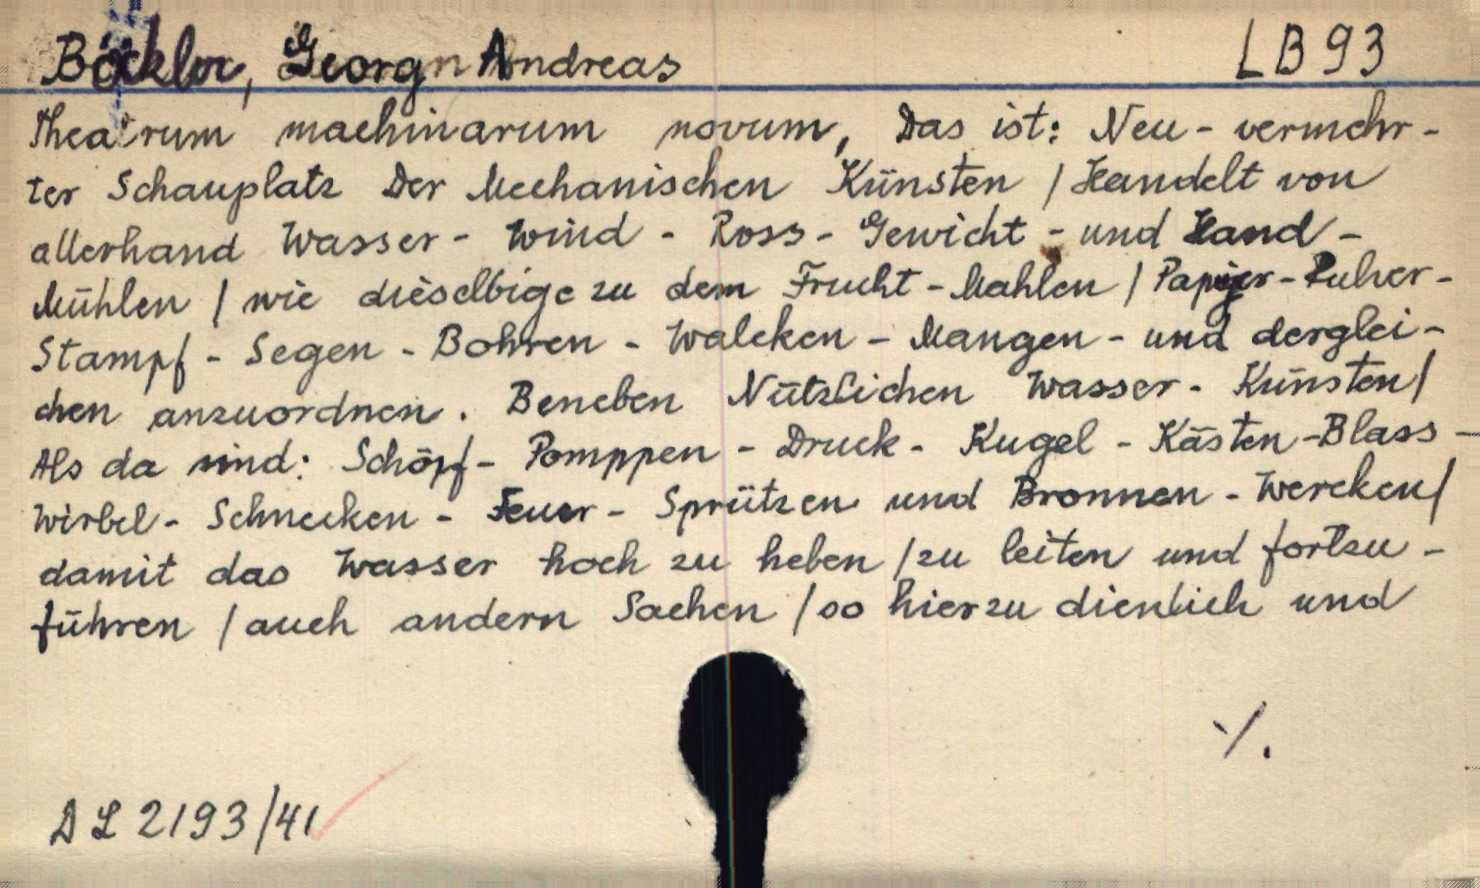 Böckler, Georg Andreas LB 93
Theatrum machinarum novum, Das ist: Neu-vermehr-
ter Schauplatz Der Mechanischen Künsten / Handelt von
allerhand Wasser- Wind- Ross- Gewicht- und Hand-
Mühlen / wie dieselbige zu dem Frucht-Mahlen / Papyer-Pulver-
Stampf- Segen- Bohren- Walcken- Mangen- und derglei-
chen anzuordnen. Beneben Nützlichen Wasser- Künsten/
Als da sind: Schöpf- Pomppen- Druck- Kugel- Kästen-Blass-
Wirbel- Schnecken- Feuer- Sprützen und Bronnen- Wercken/
damit das Wasser hoch zu heben / zu leiten und fortzu-
führen / auch andern Sachen / so hierzu dienlich und
./.
DL 2193/41